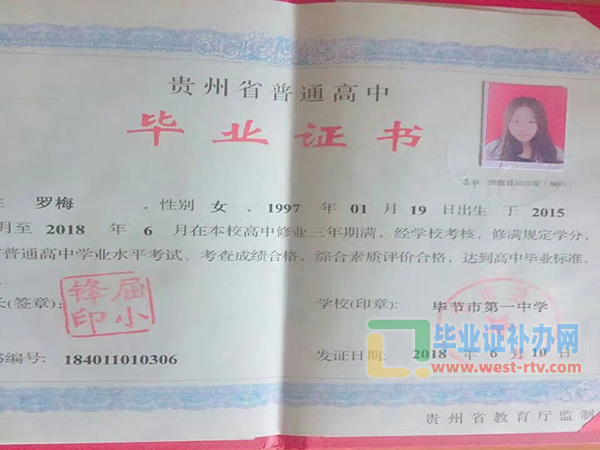 贵州省普通高中
毕业证书
罗梅 ,性别 女 ,1997 年 01 月 19 日出生 于 2015
月至 2018 年 6 月在本校高中修业三年期满,经学校考核,修满规定学分,
普通高中学业水平考试、考查成绩合格,综合素质评价合格,达到高中毕业标准,
长(签章):
屈小锋印
学校(印章): 毕节市第一中学
书编号: 184011010306
发证日期: 2018 年 6 月 10 日
毕业证补办网
www.west-rtv.com
贵州省教育厅监制